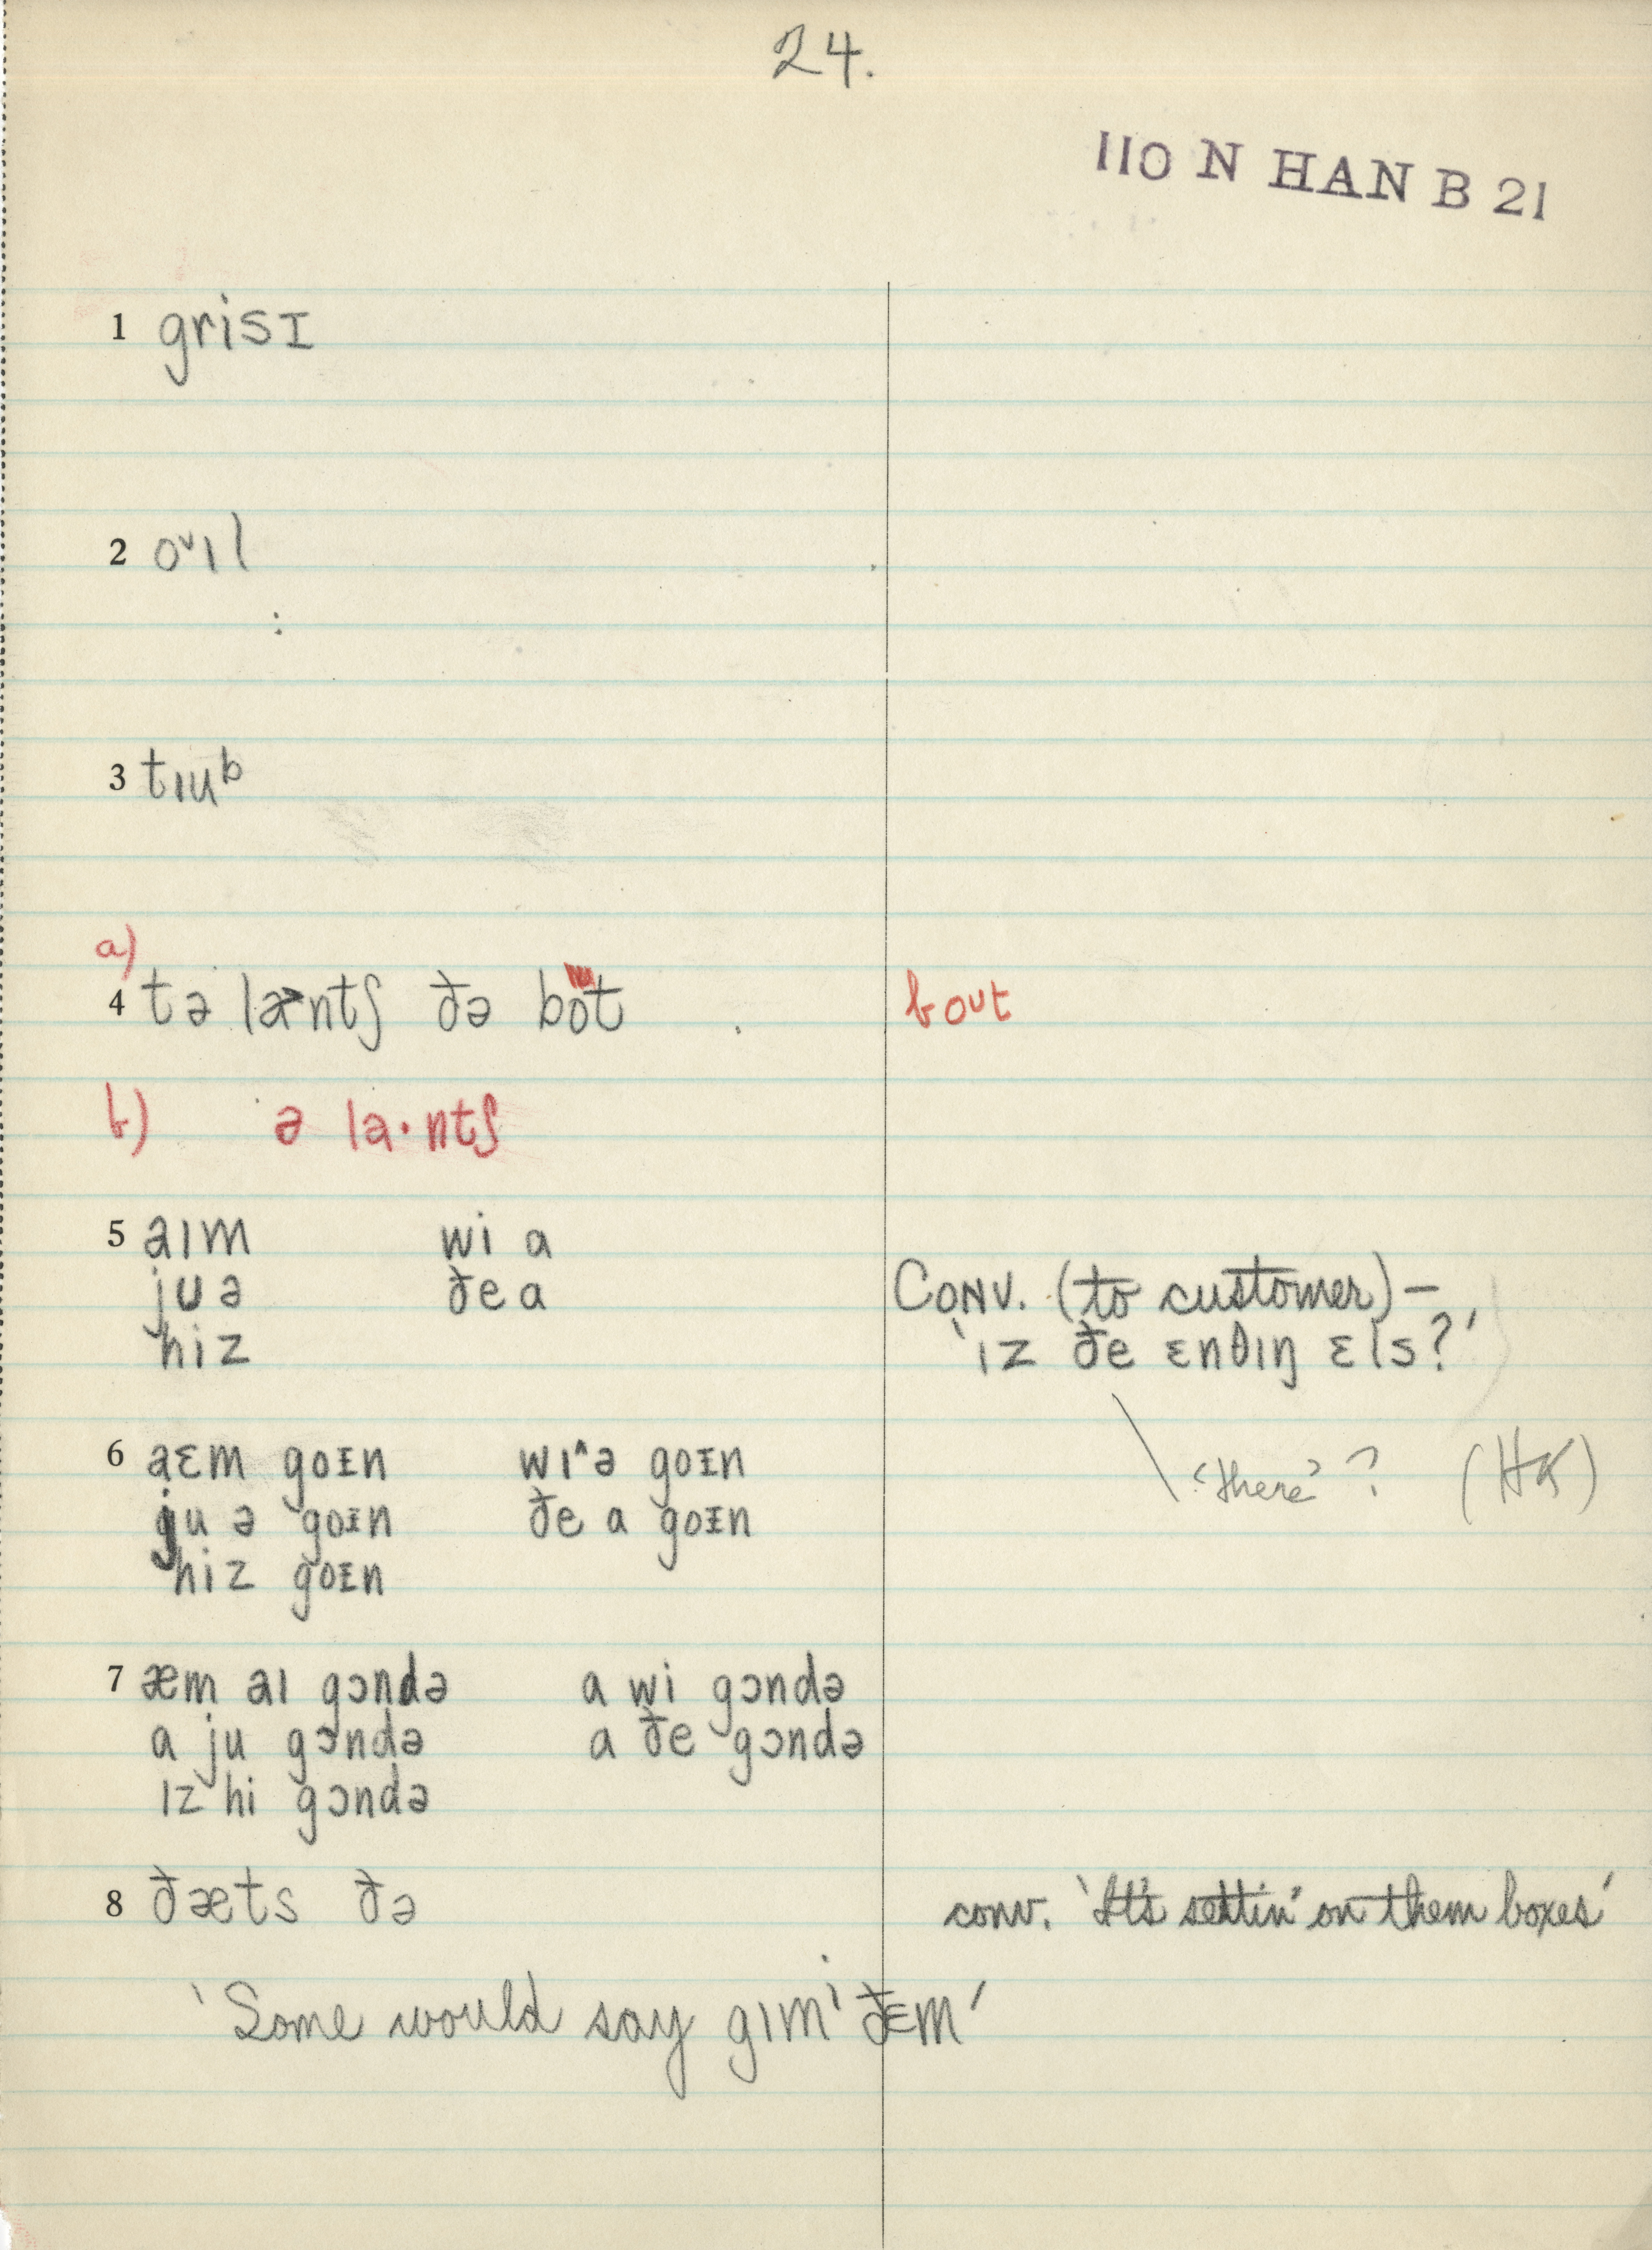 24.
110 N HAN B 21
1 grisɪ
2 o˅ɪl
3 tɪuᵇ
a)
4 tə la˃ntʃ ðə bot
bout
b) ə la·ntʃ
5 aɪm wi a
ju ə ðe a
hiz
Conv. (to customer) —
'ɪz ðe ɛnθɪŋ ɛls?'
'there'? (HK)
6 aɛm goɪn wɪ˄ə goɪn
ju ə goɪn ðe a goɪn
hiz goɪn
7 æm aɪ gɔndə a wi gɔndə
a ju gɔndə a ðe gɔndə
ɪz hi gɔndə
8 ðæts ðə
conv. 'It's settin' on them boxes'
'Some would say gɪmⁱ ðɛm'